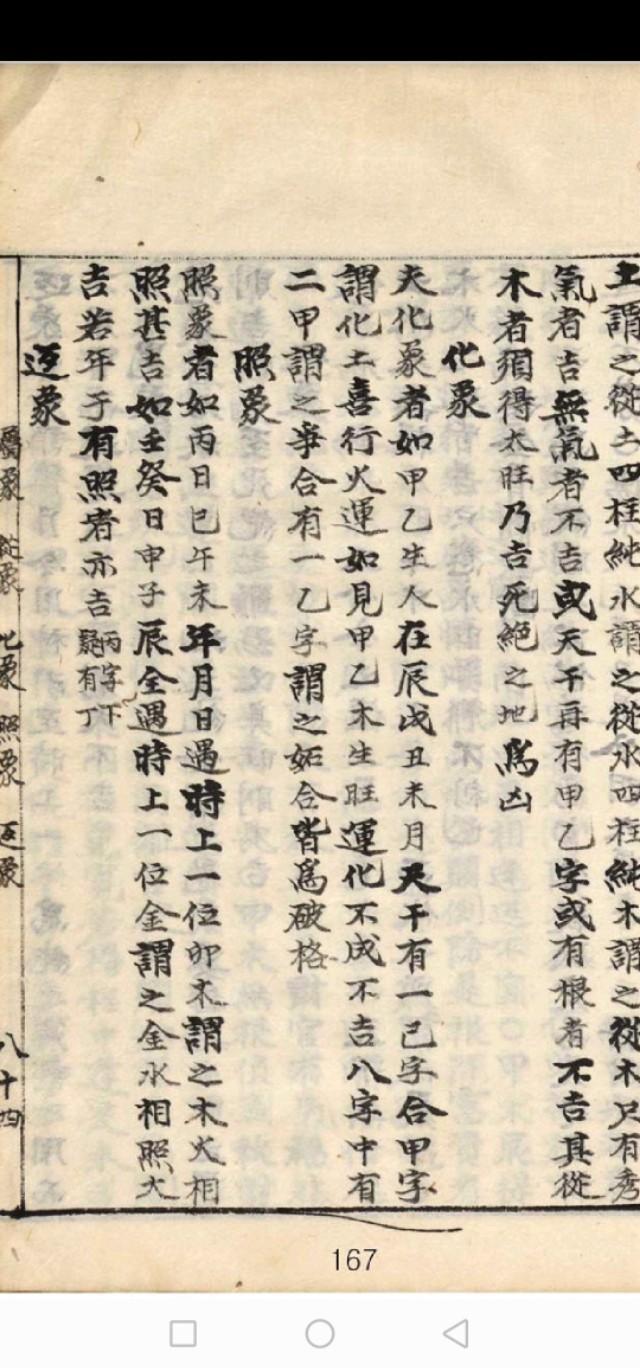 土謂之從土四柱純水謂之從水四柱純木謂之從木只有秀
氣者吉無氣者不吉或天干再有甲乙字或有根者不吉其從
木者須得太旺乃吉死絕之地為凶
化象
夫化象者如甲乙生人在辰戌丑未月天干有一己字合甲字
謂化土喜行火運如見甲乙木生旺運化不成不吉八字中有
二甲謂之爭合有一乙字謂之妬合皆為破格
照象
照象者如丙日巳午未年月日遇時上一位卯木謂之木火相
照甚吉如壬癸日申子辰全遇時上一位金謂之金水相照大
吉若年干有照者亦吉丙字下疑有丁
返象
屬象 從象 化象 照象 返象 八十四
167